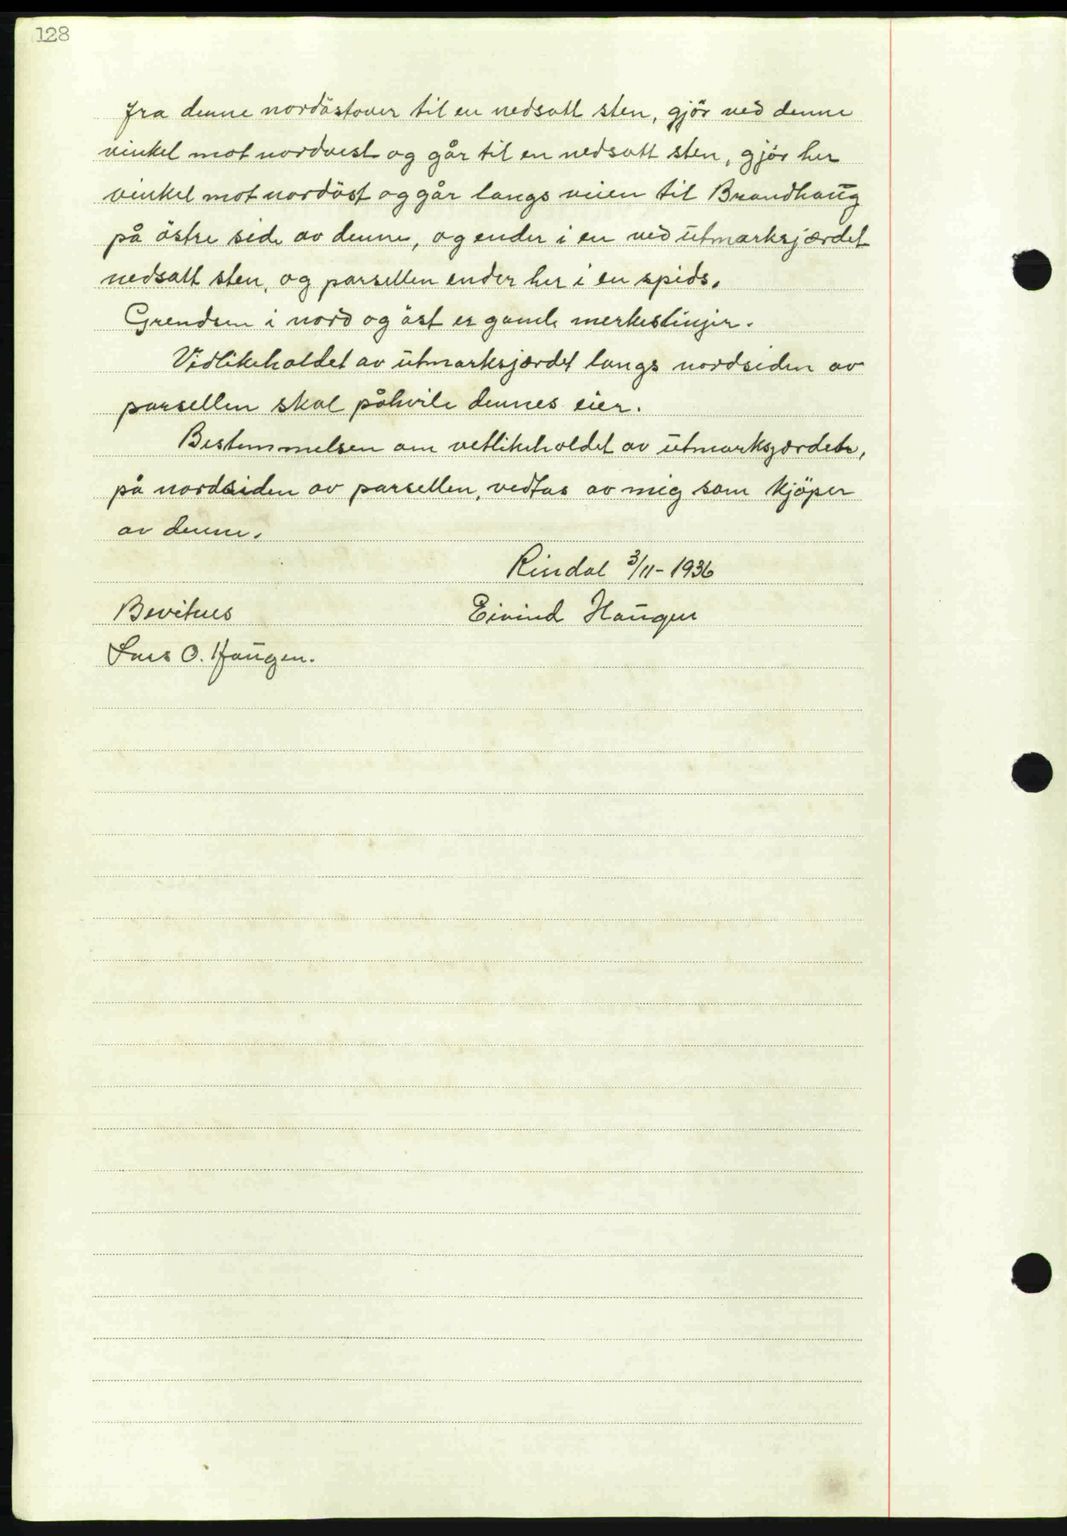 128
fra denne nordöstover til en nedsatt sten, gjör ved denne
vinkel mot nordvest og går til en nedsatt sten, gjör her
vinkel mot nordöst og går langs veien til Brandhaug
på östre side av denne, og ender i en ved utmarksjærdet
nedsatt sten, og parsellen ender her i en spids.
Grendsen i nord og öst er gamle merkeslinjer.
Vedlikeholdet av utmarksjærdet langs nordsiden av
parsellen skal påhvile dennes eier.
Bestemmelsen om vetlikeholdet av utmarksgjærdet,
på nordsiden av parsellen, vedtas av mig som kjöper
av denne.
Rindal 3/11-1936
Bevitnes Eivind Haugen
Lars O. Haugen.